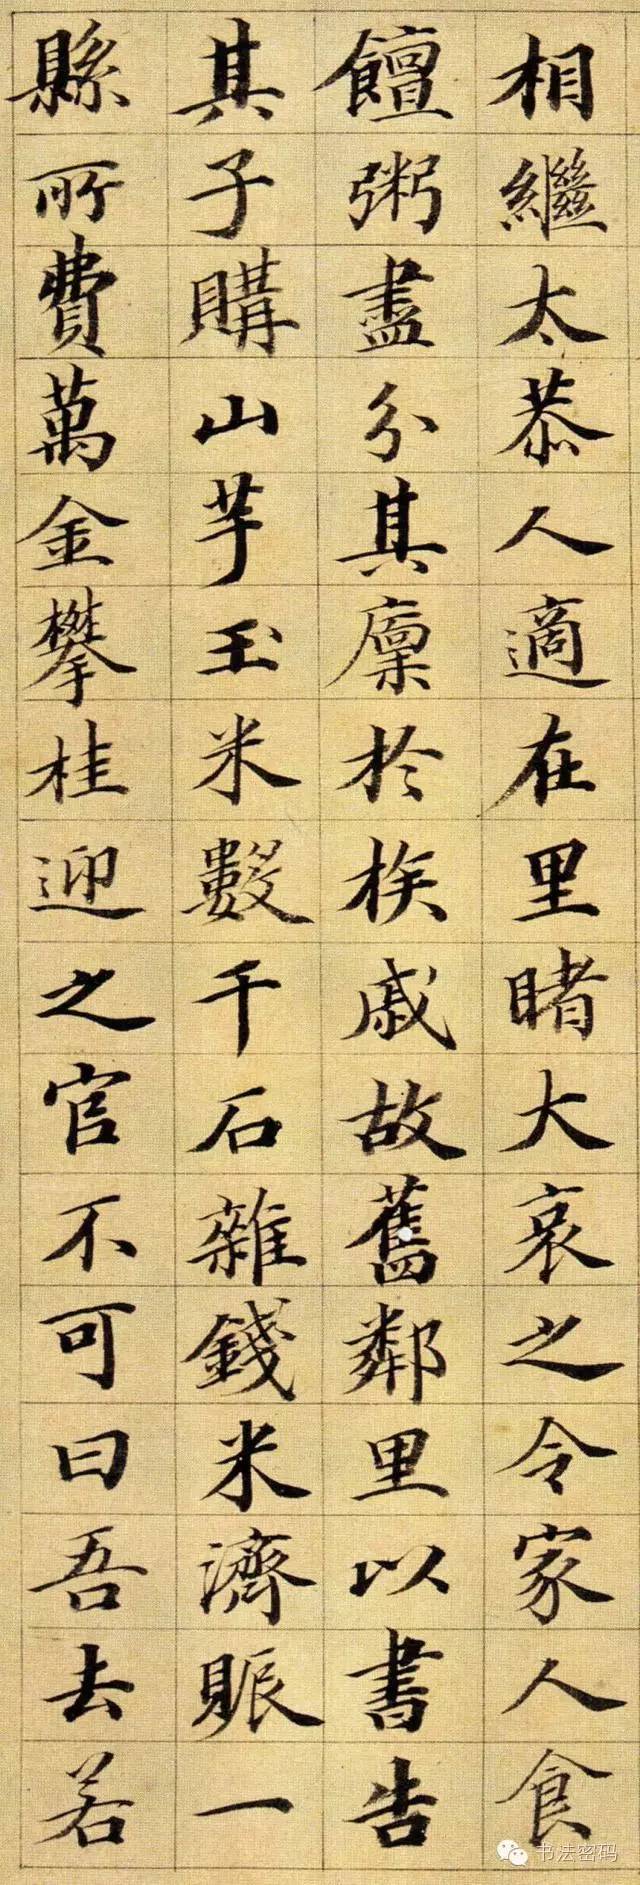 相繼太恭人適在里睹大哀之令家人食
饘粥盡分其廩於族戚故舊鄰里以書告
其子購山芋玉米數千石雜錢米濟賑一
縣所費萬金攀桂迎之官不可曰吾去若
书法密码